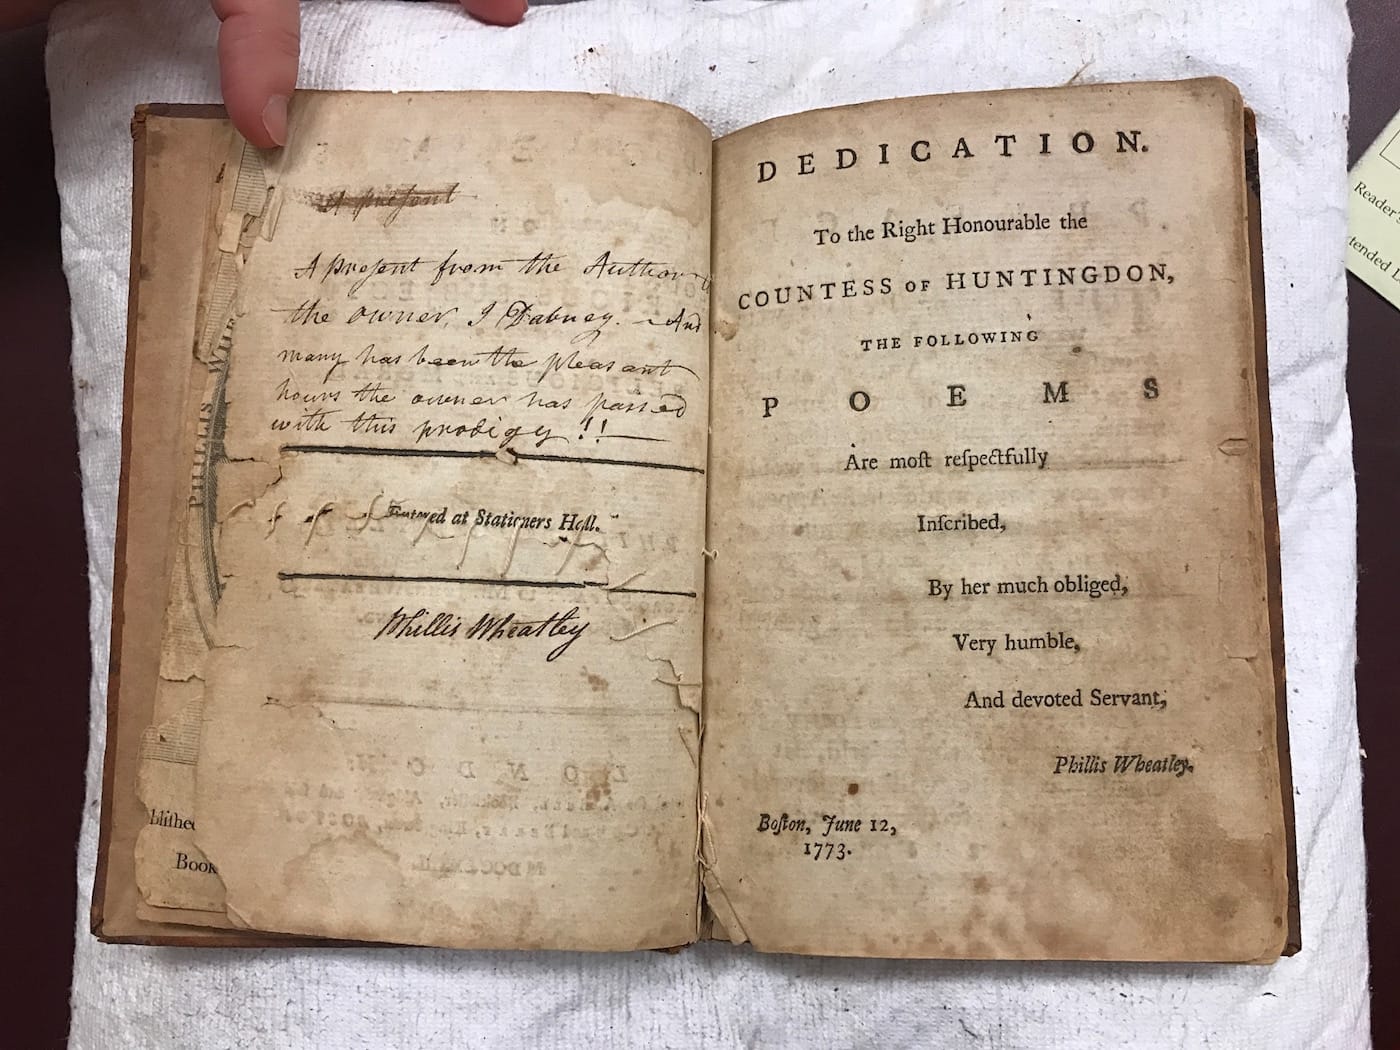 A present
A present from the Author
the owner, I Dabney. — And
many has been the pleasant
hours the owner has passed
with this prodigy !!—
Entered at Stationers Hall.
Phillis Wheatley
PHILLIS WHE
bliſhed
Book
DEDICATION.
To the Right Honourable the
COUNTESS OF HUNTINGDON,
THE FOLLOWING
POEMS
Are moſt reſpectfully
Inſcribed,
By her much obliged,
Very humble,
And devoted Servant,
Phillis Wheatley.
Boſton, June 12,
1773.
Reader
tended